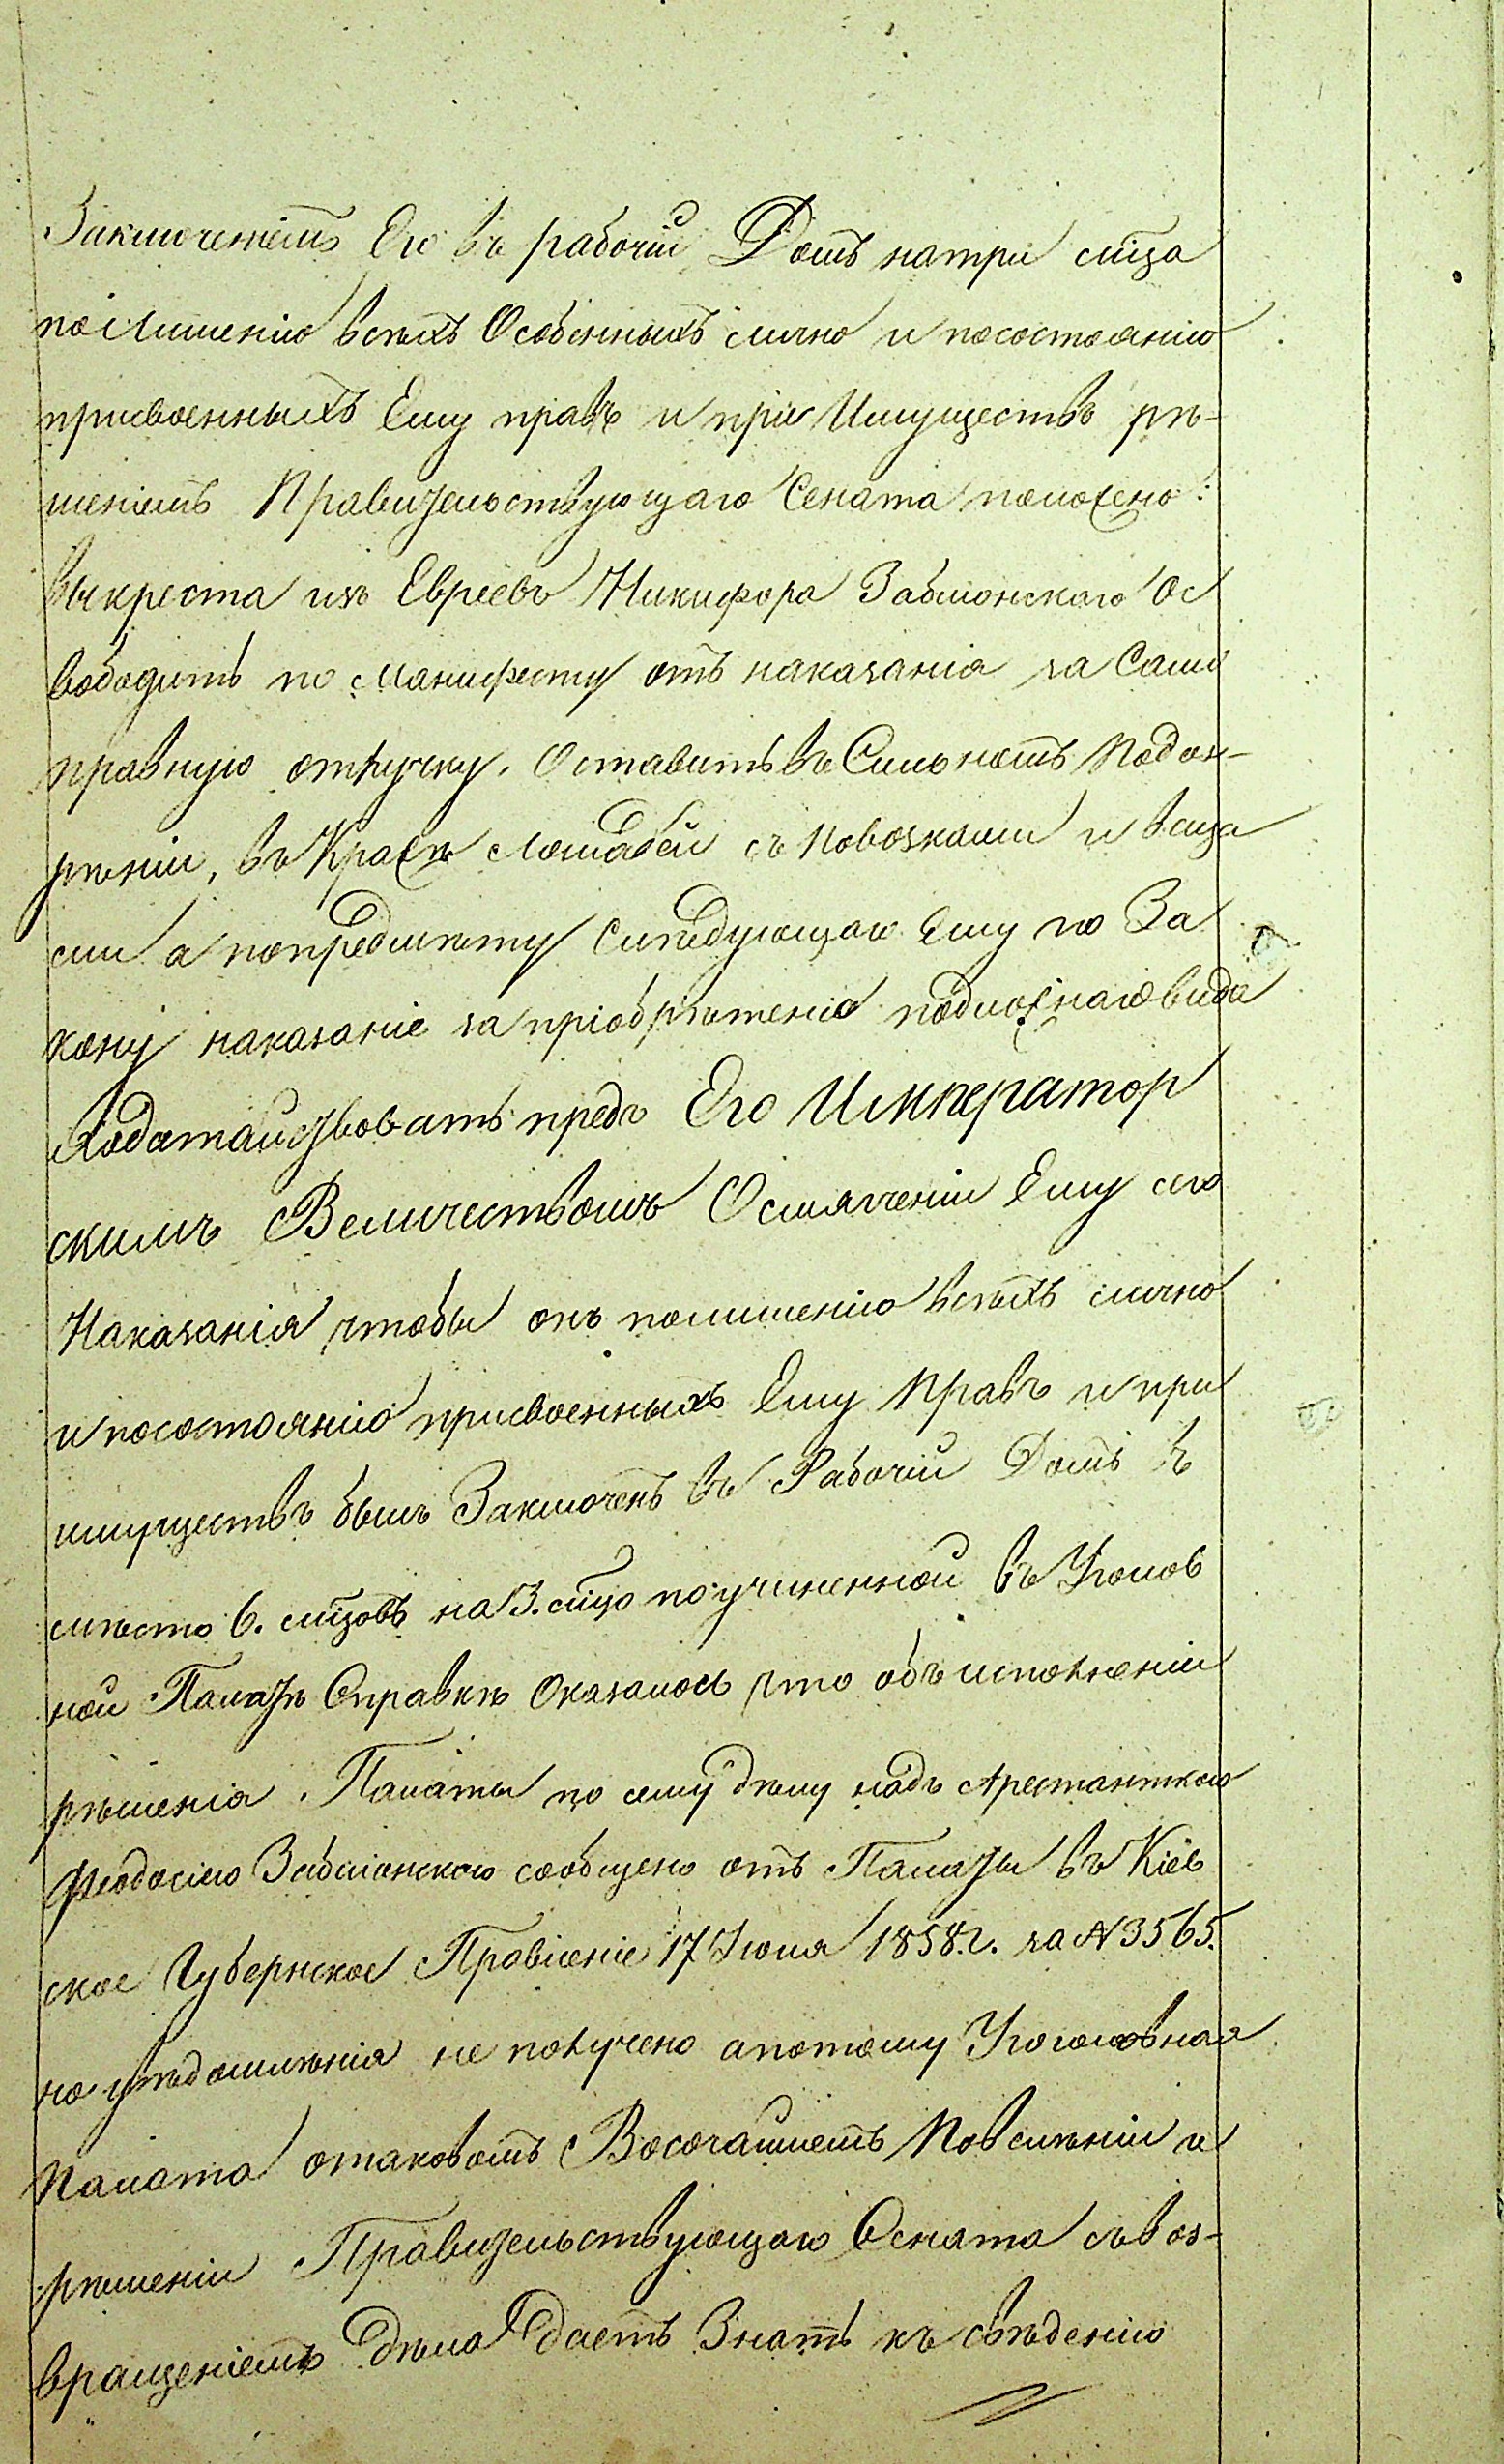 Заключеніемъ Его въ рабочій Домъ натри мѣца
полишенію всѣхъ Особенныхъ лично и посостоянію
присвоенныхъ Ему правъ и при Имуществъ рѣ-
шеніемъ Правительствующаго Сената положено:
выкреста изъ Евреевъ Никифора Заблонскаго Ос
вободить по Манифесту отъ наказанія за Само
правную отлучку. Оставить въ Сильномъ Подоз-
рѣніи, въ Кражѣ Лошадей съ Повозками и веща
ми а попредмѣту Слѣдующаго Ему по За
кону наказаніе за пріобрѣтеніе подложнаго вида
Ходатайствовать предъ Его Император
скимъ Величествомъ Осмягченіи Ему сего
Наказанія чтобы онъ полишенію всѣхъ лично
и посостоянію присвоенныхъ Ему Правъ и при
имуществъ былъ Заключенъ въ Рабочій Домъ в
мѣсто 6. мѣцовъ на 3. мѣцо поучиненной въ Уголов
ной Палатѣ Справкѣ Оказалось что объ исполненіи
рѣшенія Палаты по сему дѣлу надъ Арестанткою
Феодосіею Заблонскою сообщено отъ Палаты въ Кіев
ское Губернское Правленіе 17 Іюня 1858. г. за N 3565.
но уведомлѣнія не получено апотому Уголовная
Палата отаковомъ Высочайшемъ Повелѣніи и
рѣшеніи Правительствующаго Сената съвоз-
вращеніемъ Дѣла даетъ Знать къ свѣденію